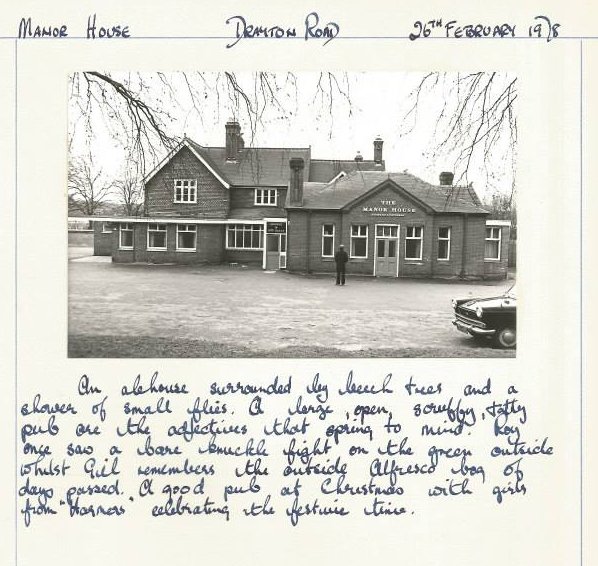 Manor House Drayton Road 26th February 1978
THE
MANOR HOUSE
An alehouse surrounded by beech trees and a
shower of small flies. A large, open, scruffy, tatty
pub are the adjectives that spring to mind. Roy
once saw a bare knuckle fight on the green outside
whilst Gil remembers the outside Alfresco bog of
days passed. A good pub at Christmas with girls
from "Warners" celebrating the festive time.